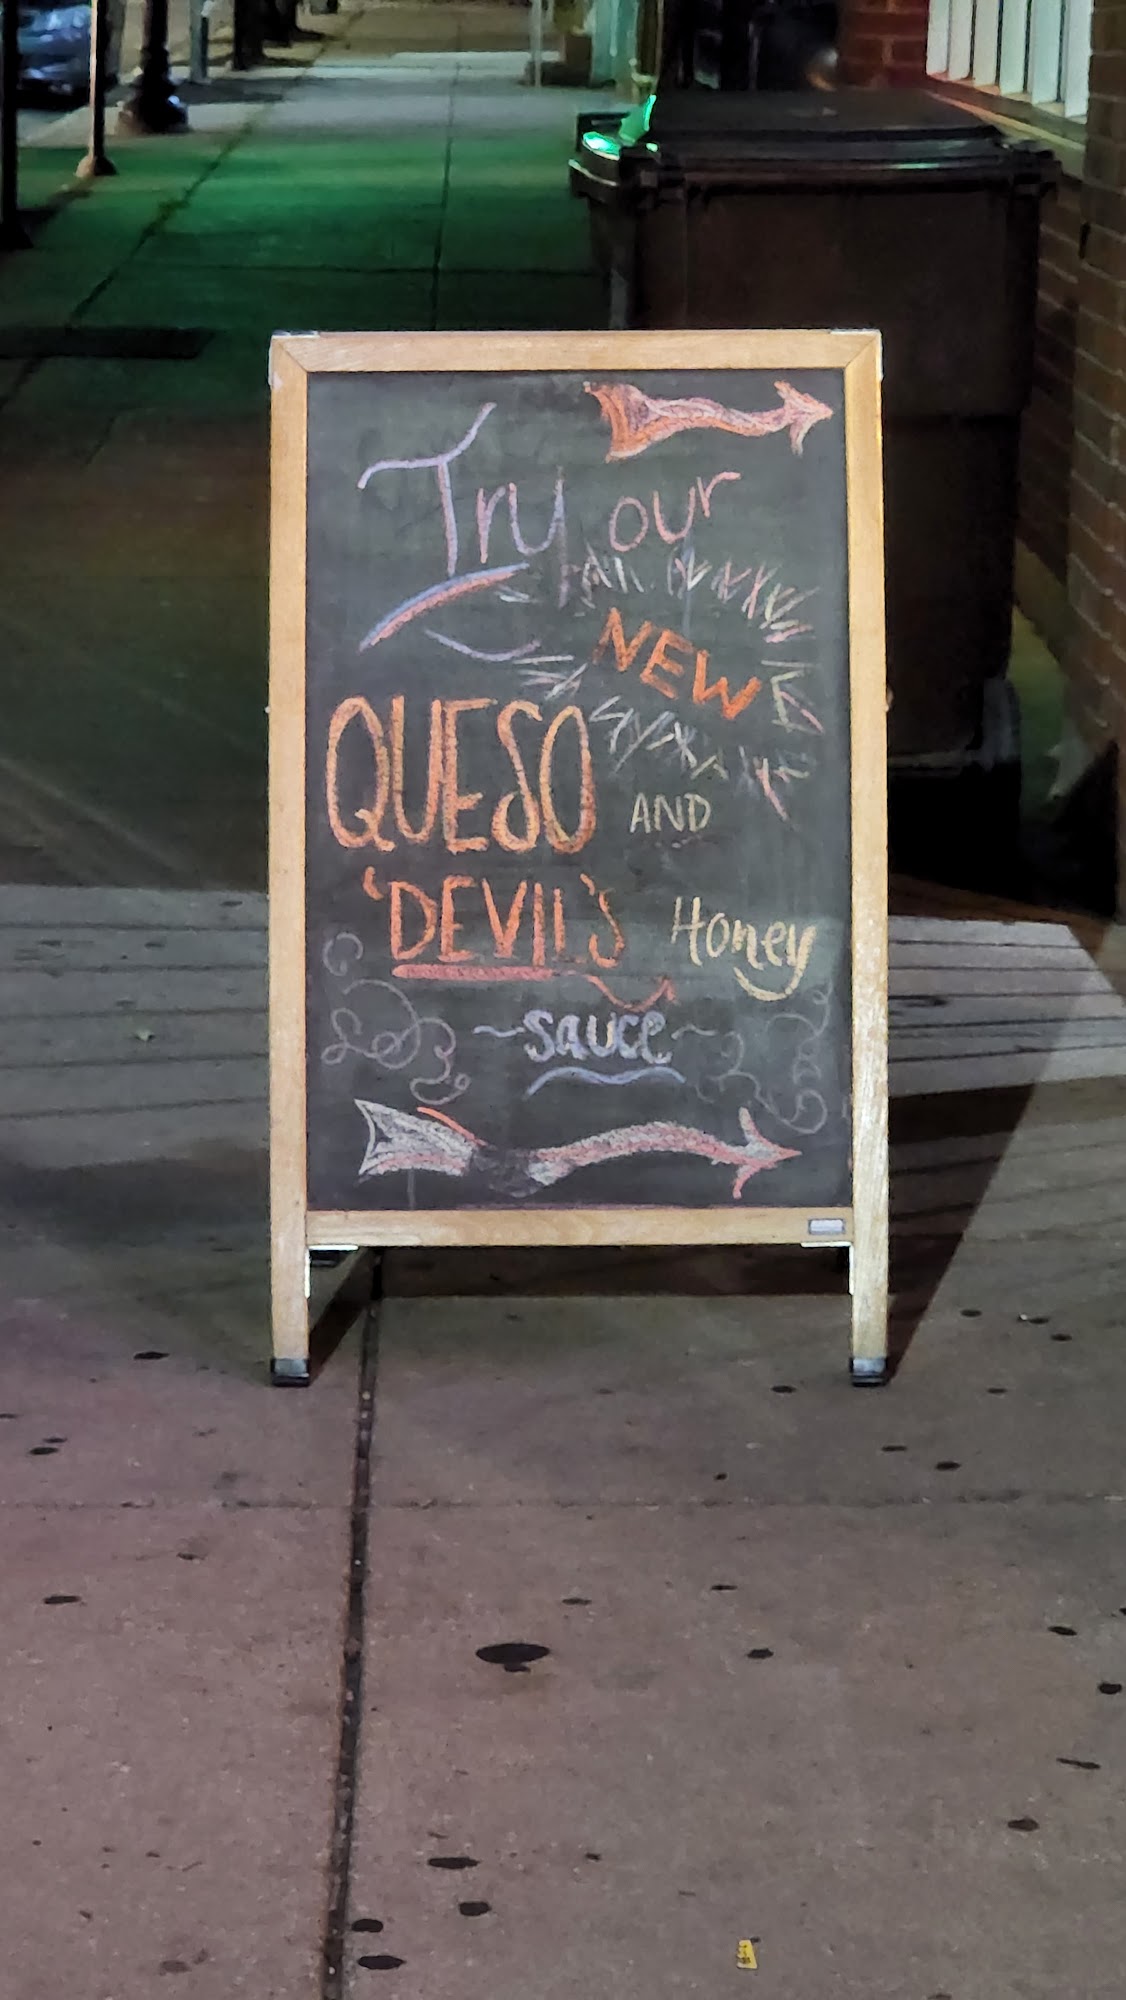 Try our
NEW
QUESO AND
'DEVIL'S Honey
~sauce~